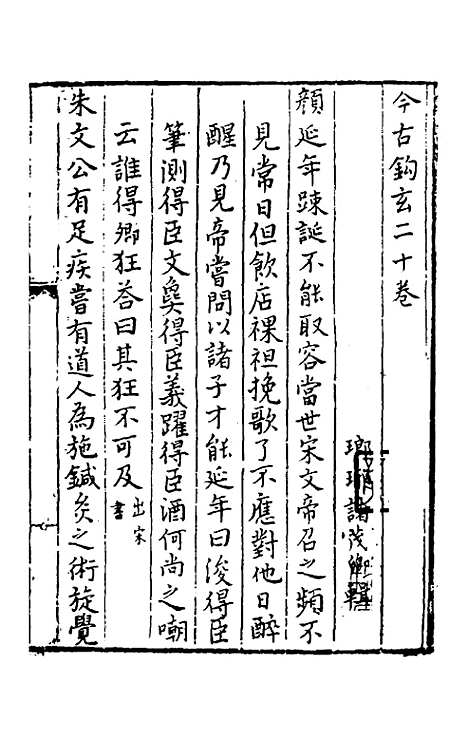 今古鈎玄二十卷
瑯琊諸茂卿輯
顔延年踈誕不能取容當世宋文帝召之頻不
見常日但飲店裸袒挽歌了不應對他日醉
醒乃見帝嘗問以諸子才能延年曰浚得臣
筆測得臣文㚟得臣義躍得臣酒何尚之嘲
云誰得卿狂荅曰其狂不可及出宋書
朱文公有足疾嘗有道人為施鍼灸之術旋覺